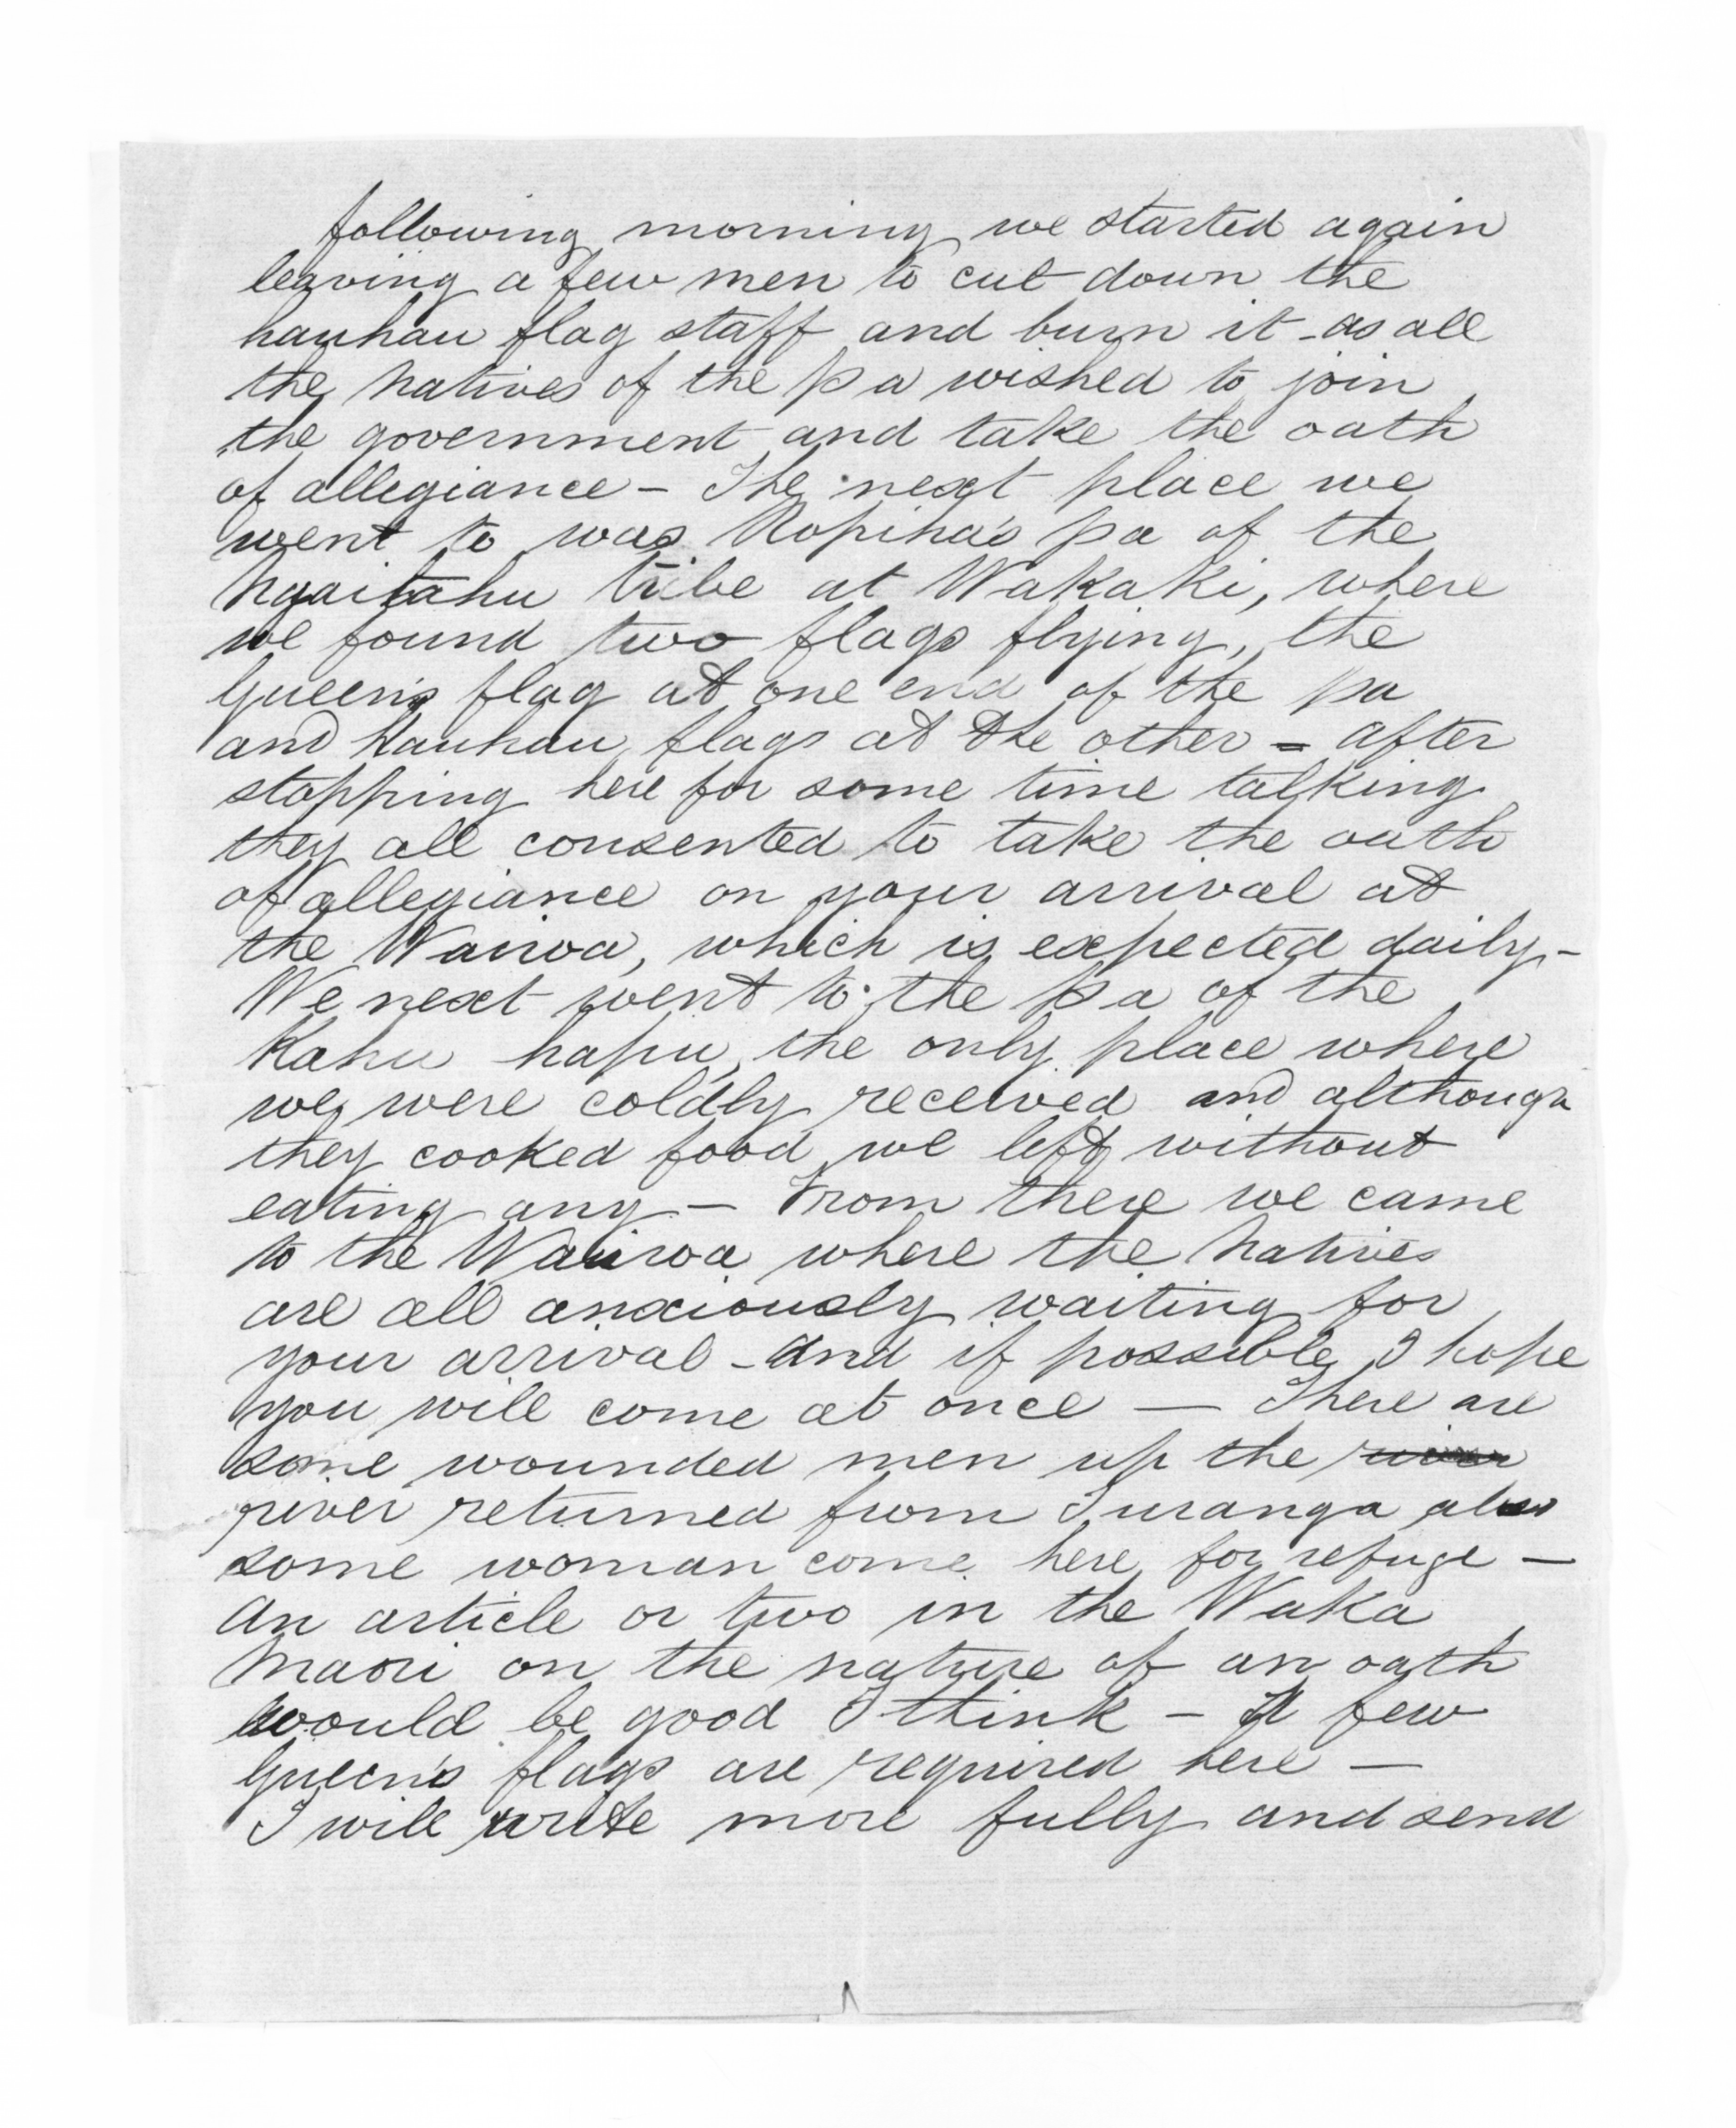 following morning we started again
leaving a few men to cut down the
hauhau flag staff and burn it - as all
the Natives of the pa wished to join
the government and take the oath
of allegiance - The next place we
went to was Ropiha's pa of the
Ngaitahu tribe at Wakaki, where
we found two flags flying, the
Queen's flag at one end of the pa
and hauhau flags at the other = after
stopping here for some time talking
they all consented to take the oath
of allegiance on your arrival at
the Wairoa, which is expected daily -
We next went to the pa of the
Kahu hapu, the only place where
we were coldly received and although
they cooked food we left without
eating any - From there we came
to the Wairoa where the Natives
are all anxiously waiting for
your arrival - And if possible I hope
you will come at once — There are
some wounded men up the river
river returned from Turanga also
some woman come here for refuge —
An article or two in the Waka
Maori on the nature of an oath
would be good I think - A few
Queen's flags are required here —
I will write more fully and send